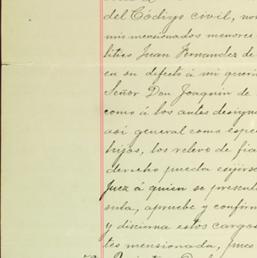 del Código civil, nom
mis mencionados menores
Juan Fernandez de
en su defecto á mi queri
Señor Don Joaquin de
como á los antes design
asi general como espec
hijos, los relevo de fia
derecho pueda exijirse
Juez á quien se present
suta, apruebe y confirm
y discierna estos cargos
tes mencionada, pues